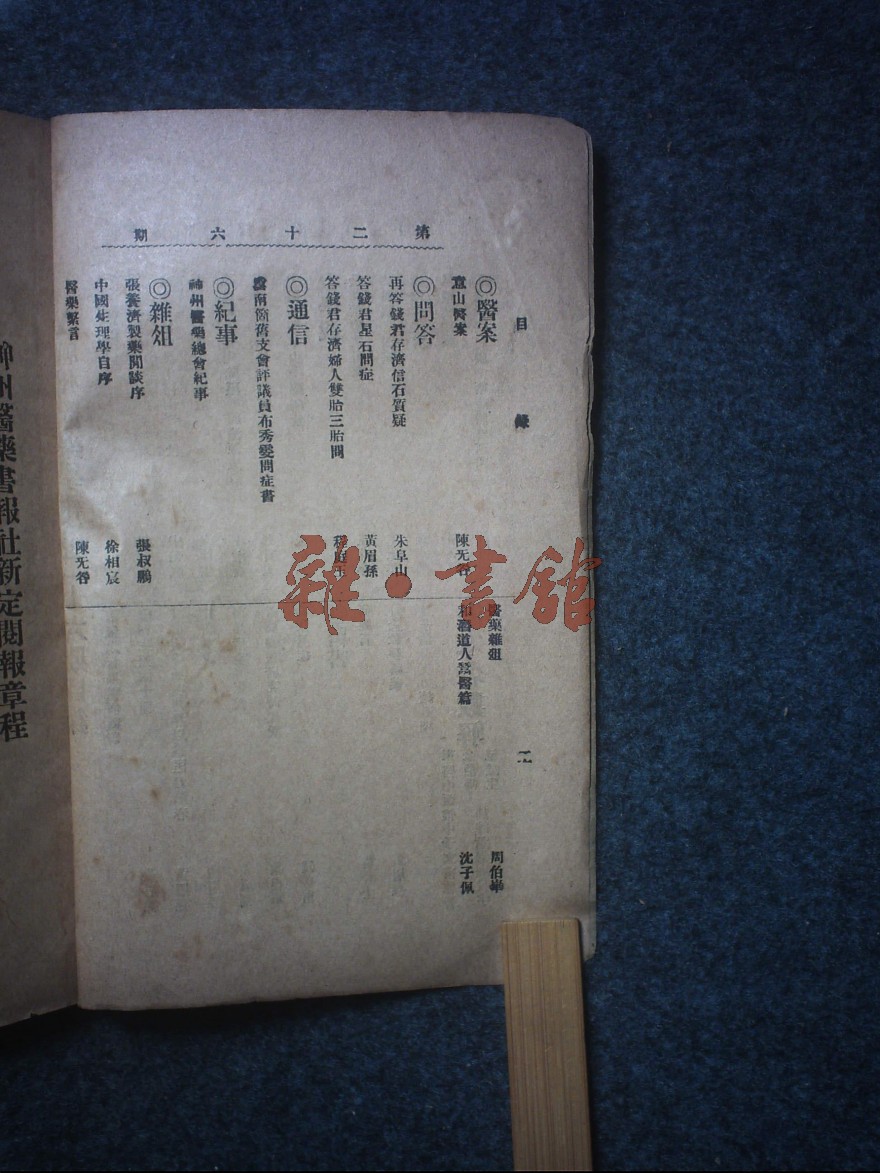 目錄
二
第二十六期
◎醫案
意山醫案
陳无咎
◎問答
再答錢君存濟信石質疑
朱阜山
答錢君星石問症
黃眉孫
答錢君存濟婦人雙胎三胎問
◎通信
雲南箇舊支會評議員布秀雯問症書
◎紀事
神州醫藥總會紀事
◎雜俎
張養濟製藥閒談序
張叔鵬
中國生理學自序
徐相宸
醫藥繫言
陳无咎
醫藥雜俎
周伯華
和漕道人鶖醫篇
沈子佩
神州醫藥書報社新定閱報章程
雜·書館